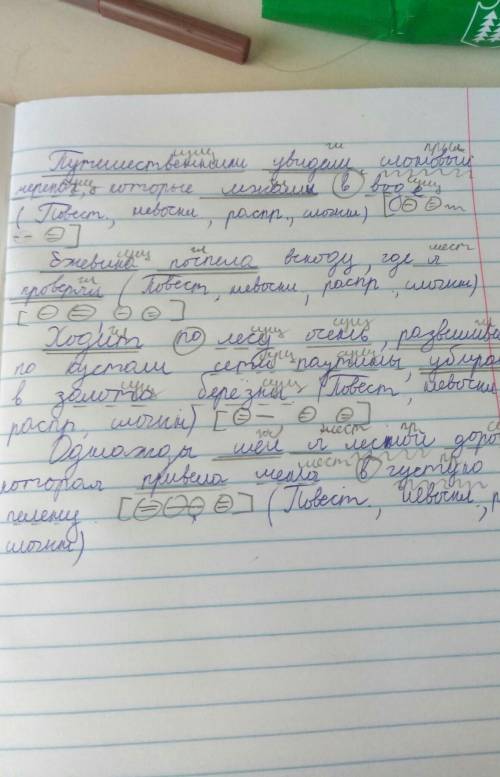 Путешественники увидели слоновый
черепах, которые лежали в воде
(Повест, невоскл, распр, сложн)
Ежевика поспела всюду, где я
проверял (Повест, невоскл, распр, сложн)
Ходит по лесу очень, развешива
по кустам сети паутины, убира
в золото березны (Повест, невоскл
распр, сложн)
Однажды шёл я лесной доро
которая привела меня в густую
пелену (Повест, невоскл, р
сложн)